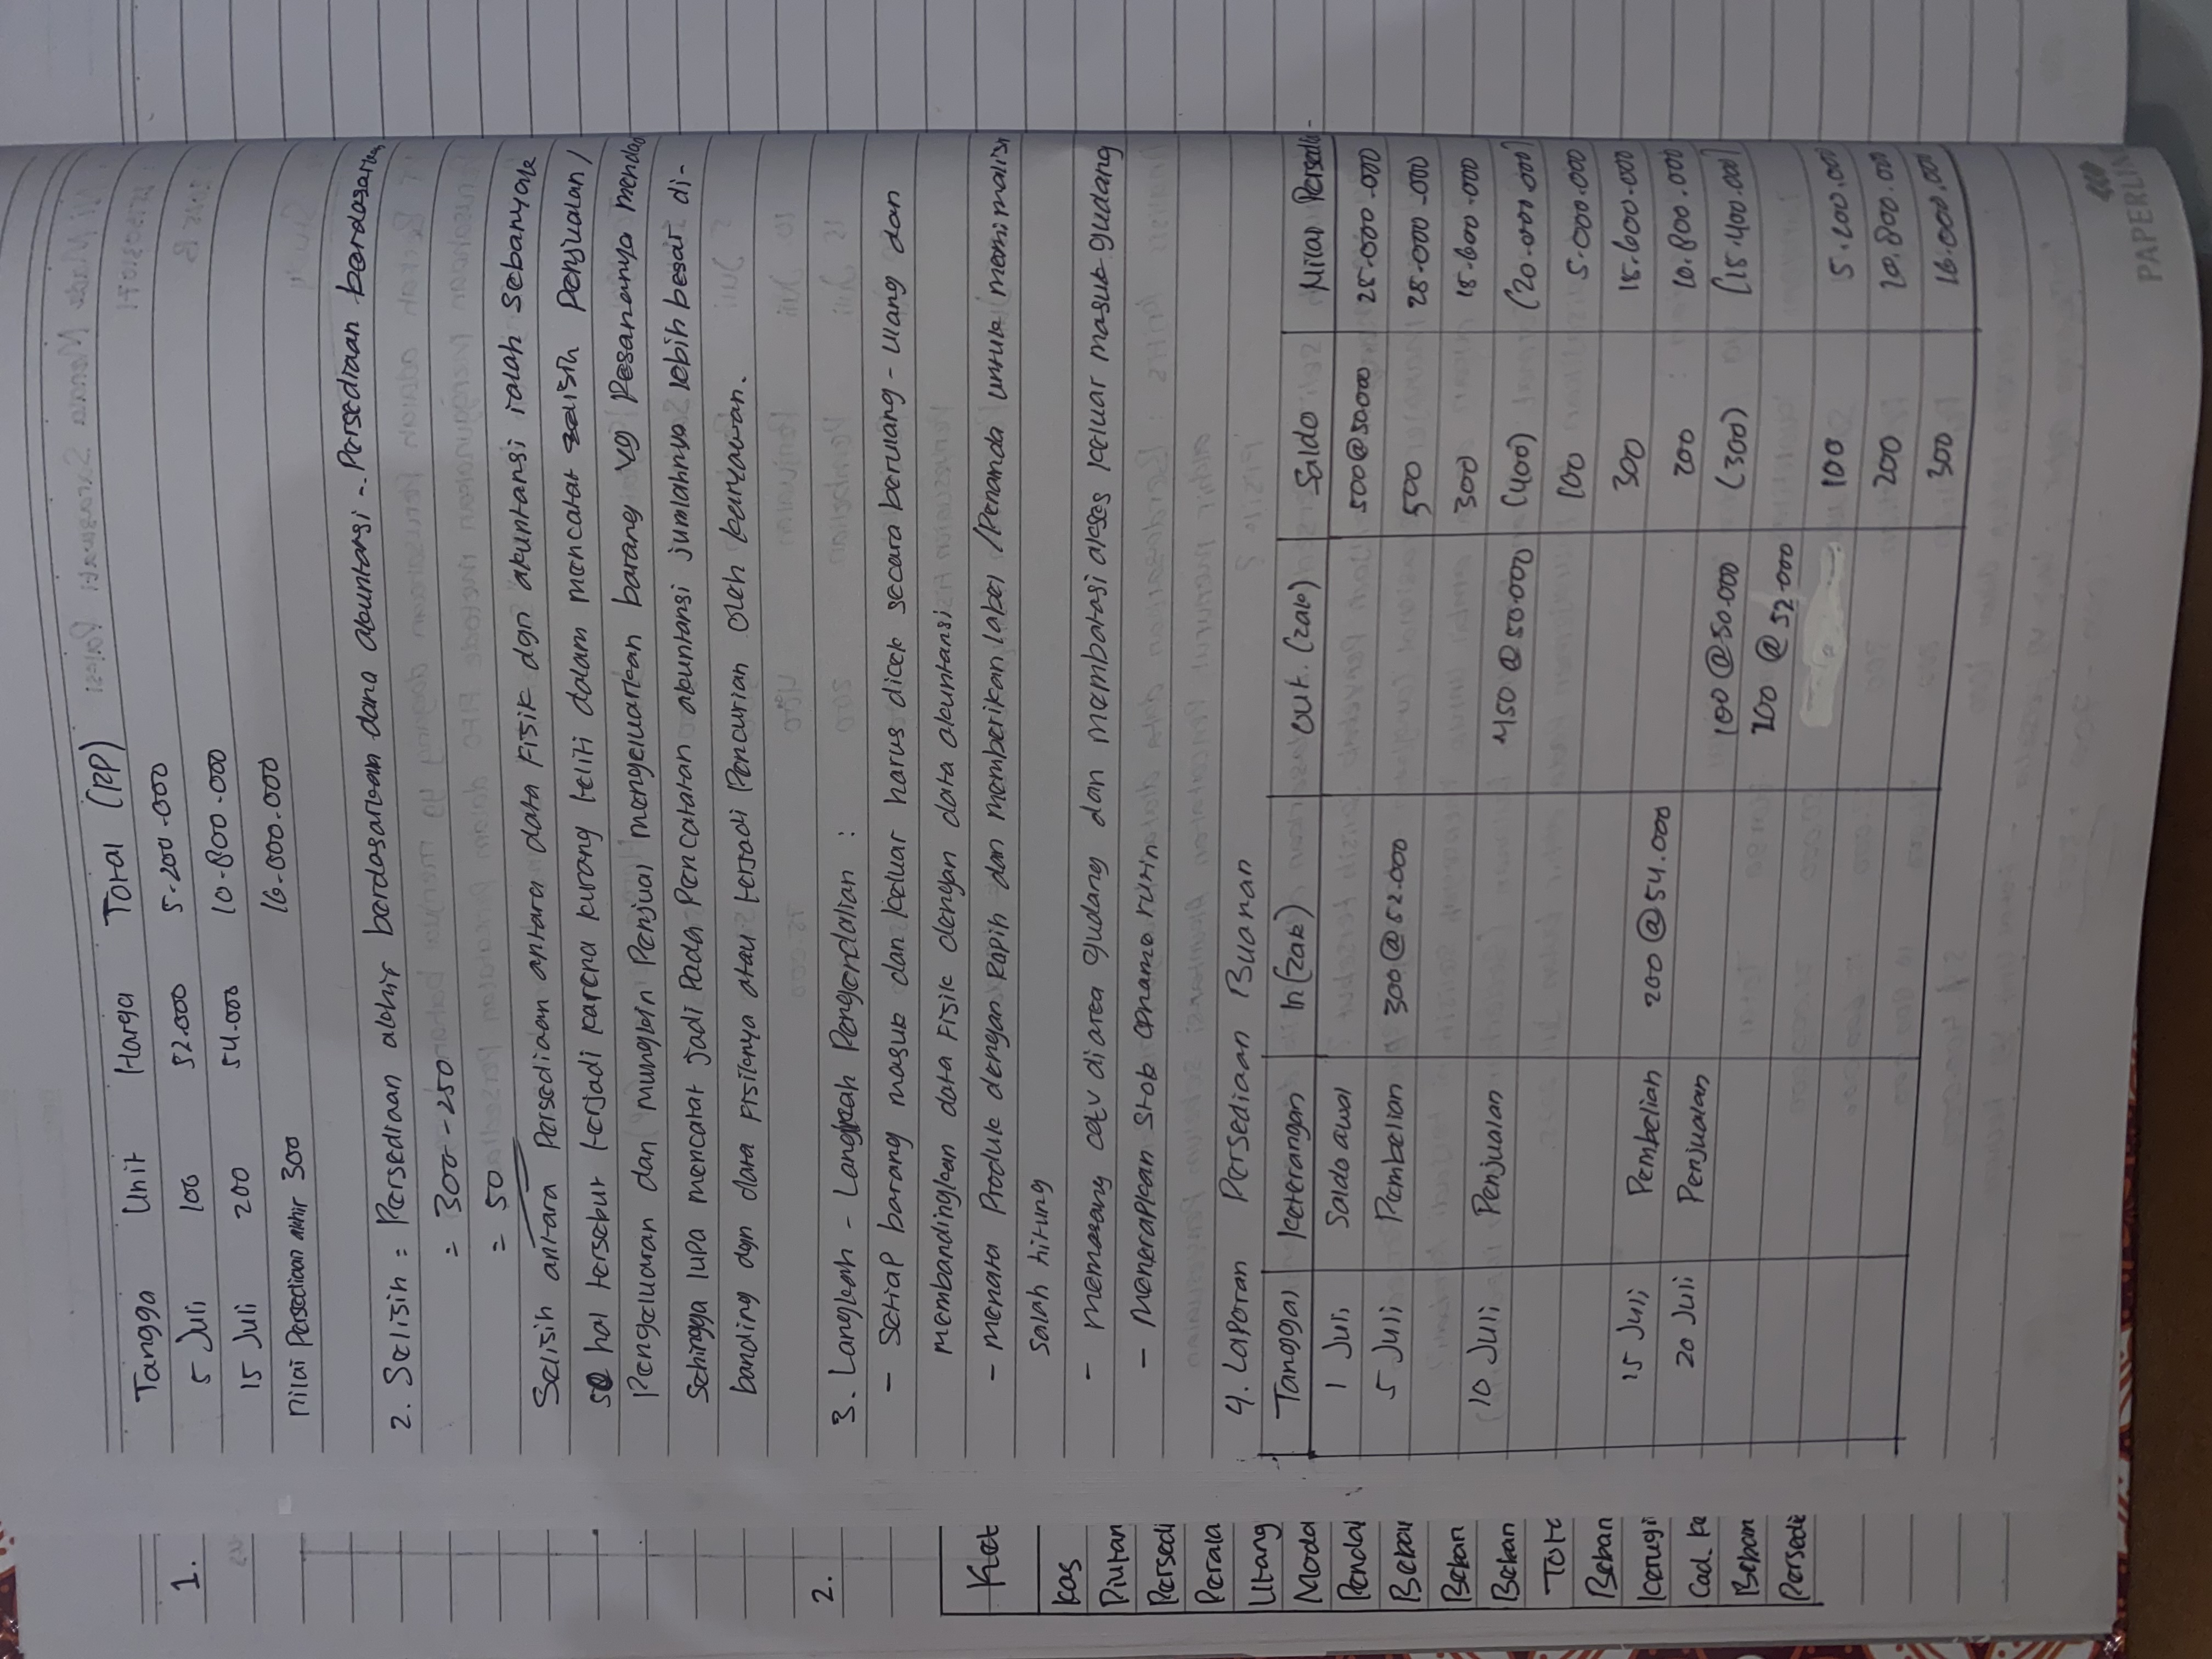 Tangga Unit Harga Total (RP)
5 Juli 100 52.000 5.200.000
15 Juli 200 54.000 10.800.000
nilai Persediaan akhir 300 16.000.000
2. Selisih = Persediaan akhir berdasarkan dana akuntansi - Persediaan berdasarkan
= 300 - 250
= 50
Selisih antara Persediaan antara data Fisik dgn akuntansi ialah sebanyak
hal tersebut terjadi karena kurang teliti dalam mencatat Penjualan /
Pengeluaran dan mungkin Penjual mengeluarkan barang yg Pesananya mendad
Sehingga lupa mencatat jadi Pada Pencatatan akuntansi jumlahnya lebih besar di-
banding dgn data Fisiknya atau terjadi Pencurian oleh karyawan.
3. Langkah - Langkah Pengendalian :
- Setiap barang masuk dan keluar harus dicek secara berulang - ulang dan
membandingkan data Fisik dengan data akuntansi
- menata Produk dengan Rapih dan memberikan label /Penanda untuk meminimalisi
salah hitung
- memasang cctv di area gudang dan membatasi akses keluar masuk gudang
- menerapkan Stok opname rutin
4. Laporan Persediaan Buanan
Tanggal Keterangan In (zak) Out (zak) Saldo Nilai Persedi-
1 Juli Saldo awal 500@50000 25.000.000
5 Juli Pembelian 300@52.000 500 25.000.000
300 15.600.000
10 Juli Penjualan 450@50.000 (400) (20.000.000)
100 5.000.000
15 Juli Pembelian 200@54.000 300 15.600.000
20 Juli Penjualan 200 10.800.000
100@50.000 (300) (15.400.000)
200 @ 52.000
100 5.200.000
200 10.800.000
300 16.000.000
PAPERLIN
1.
2.
Ket
Kas
Piutan
Persedi
Perala
Utang
Moda
Pendal
Beban
Beban
Beban
Tot
Beban
Kerugi
Cad. Ke
Beban
Persedi